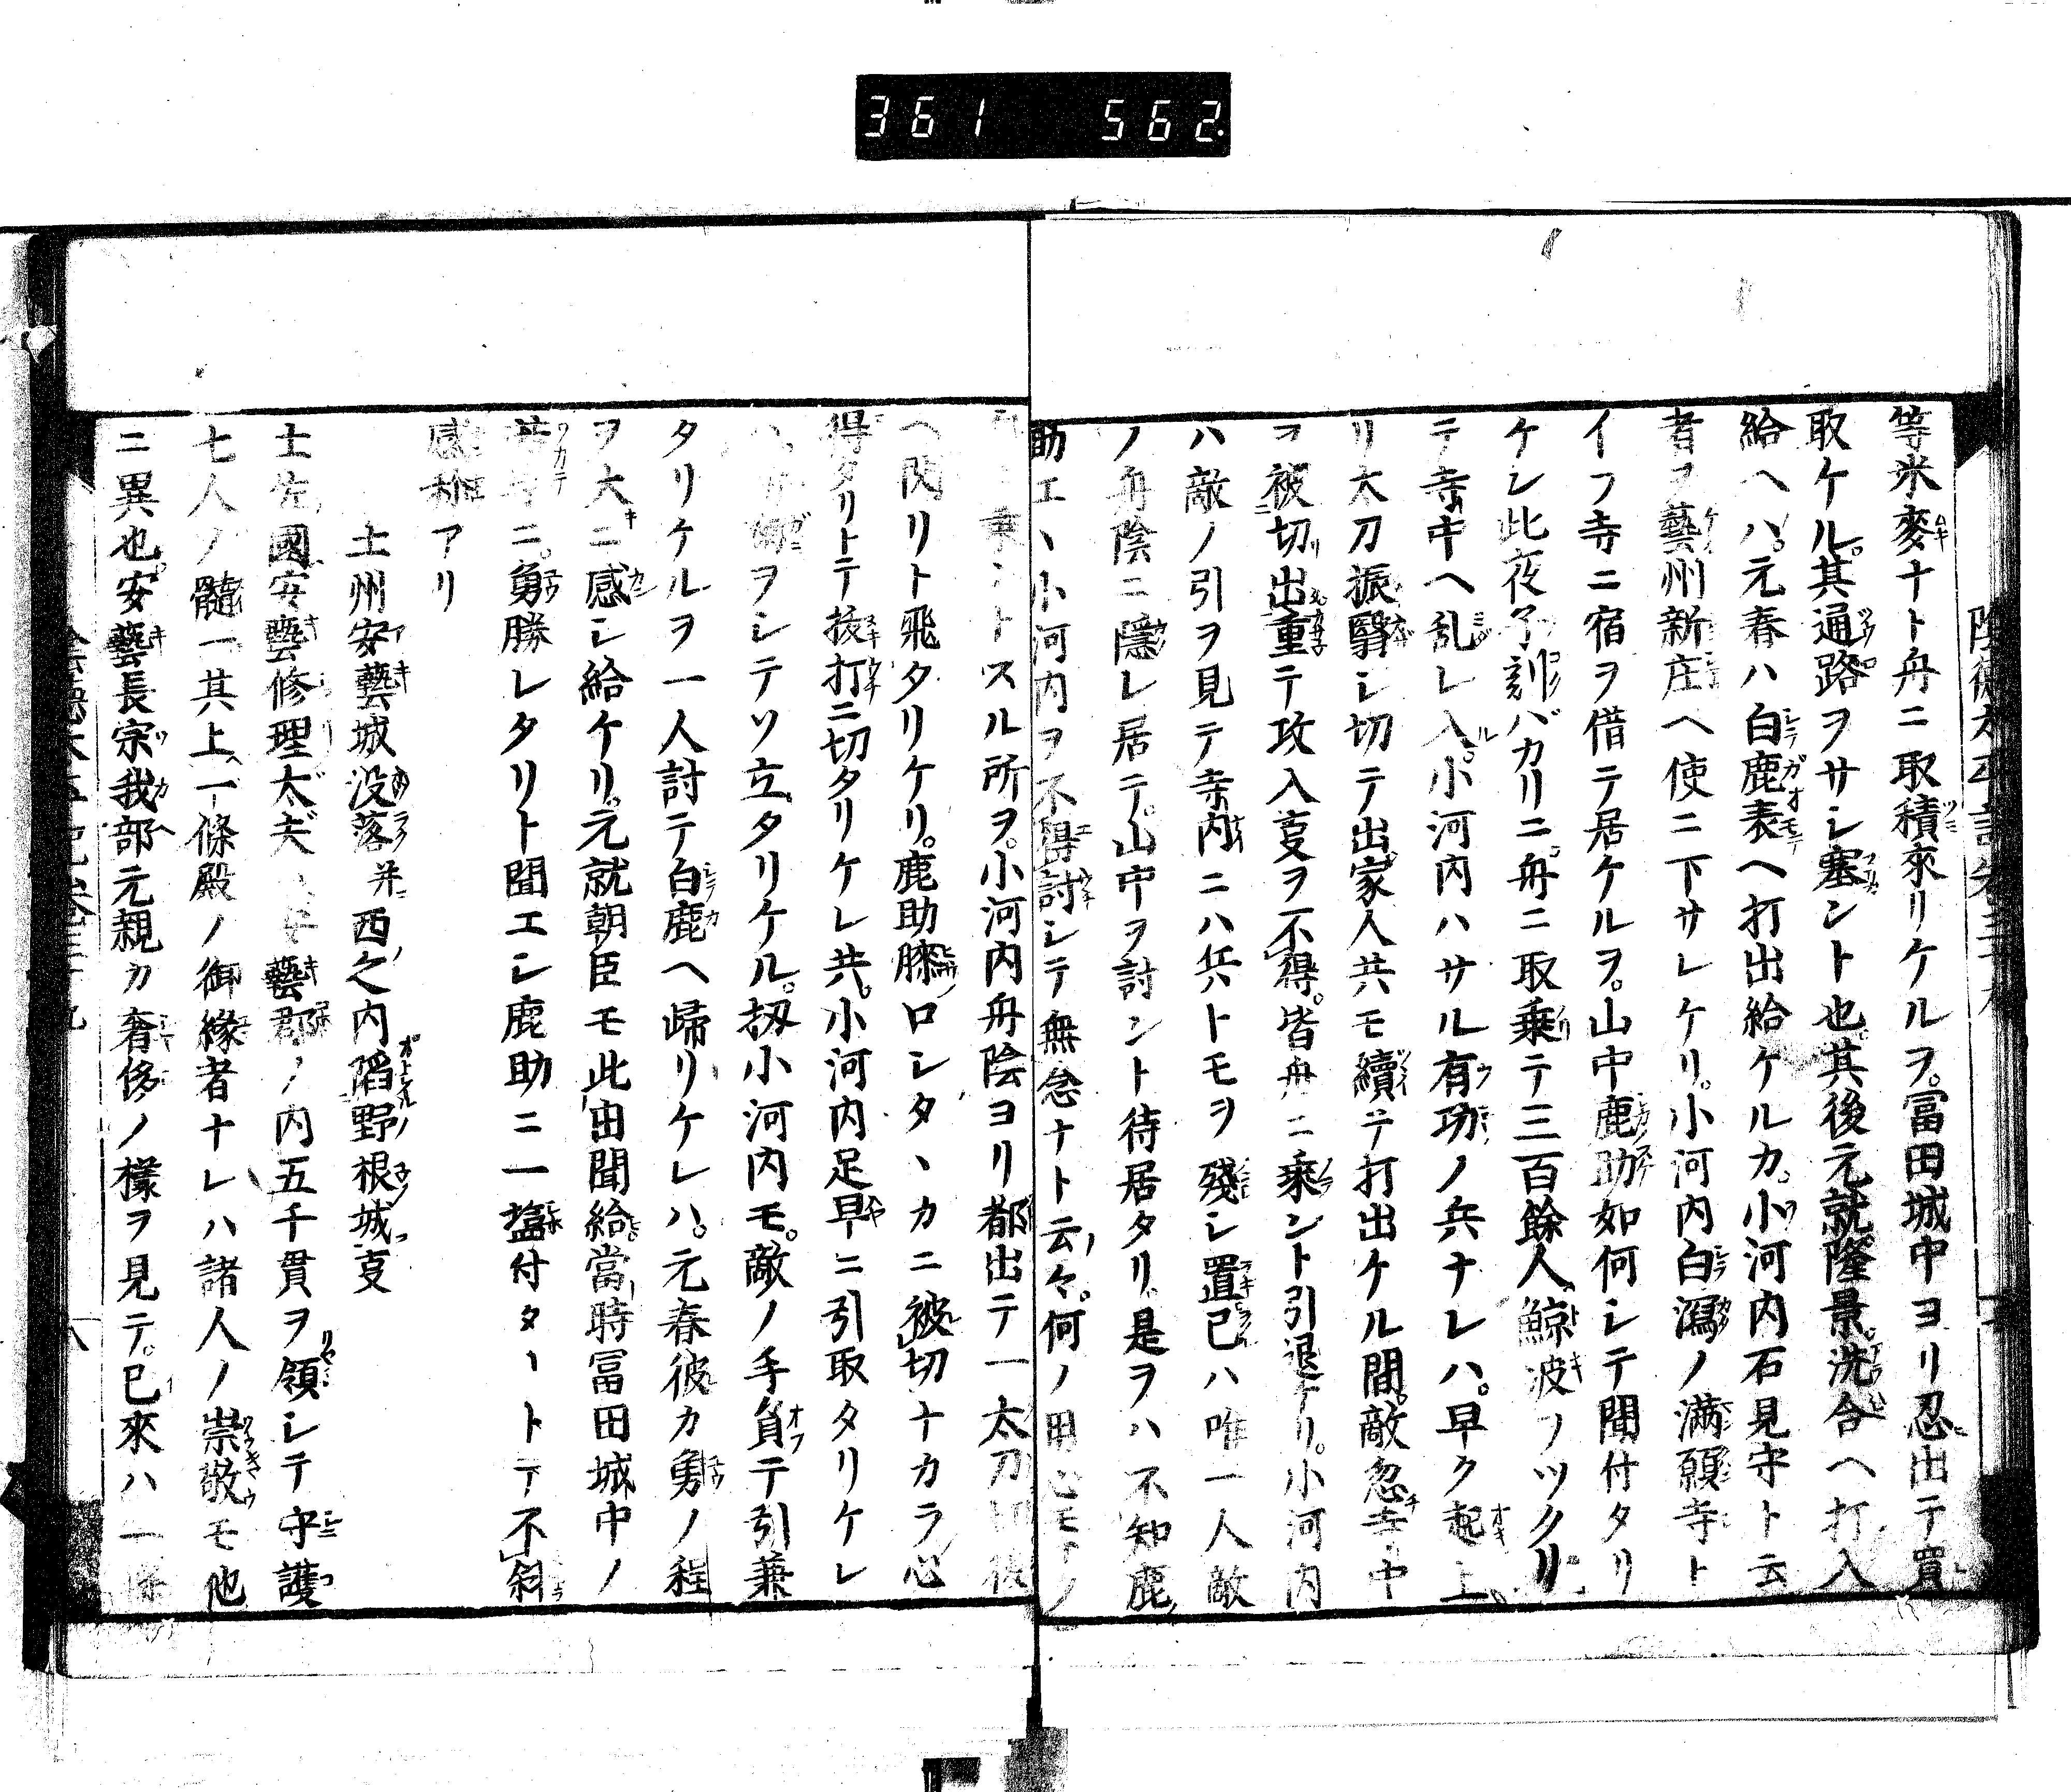 361 562
等米麥ナト舟ニ取積來リケルヲ。冨田城中ヨリ忍出テ買
取ケル。其通路ヲサシ塞ント也。其後元就隆景。洗合ヘ打入
給ヘハ。元春ハ白鹿表ヘ打出給ケルカ。小河内石見守ト云
者ヲ藝州新庄ヘ使ニ下サレケリ。小河内白潟ノ満願寺ト
イフ寺ニ宿ヲ借テ居ケルヲ。山中鹿助如何シテ聞付タリ
ケレ此夜子刻バカリニ。舟ニ取乗テ三百餘人鯨波フツクリ
テ寺中ヘ乱レ入。小河内ハサル有功ノ兵ナレハ。早ク起上
リ太刀振翳シ切テ出。家人共モ續テ打出ケル間。敵忽寺中
ヲ被切出重テ攻入叓ヲ不得。皆舟ニ乗ント引退ケリ。小河内
ハ敵ノ引ヲ見テ寺内ニハ兵トモヲ殘シ置已ハ唯一人敵
ノ舟陰ニ隱レ居テ。山中ヲ討ント待居タリ。是ヲハ不知鹿
助エヽ小河内ヲ不得討シテ無念ナト云々。何ノ用心モナク
スル所ヲ。小河内舟陰ヨリ都出テ一太刀切
ヘ閃リト飛タリケリ。鹿助膝ロシタヽカニ被切ナカラ心
得タリトテ抜打ニ切タリケレ共。小河内足早ニ引取タリケレ
ヲシテソ立タリケル。扨小河内モ。敵ノ手負テ引兼
タリケルヲ一人討テ白鹿ヘ歸リケレハ。元春彼カ勇ノ程
ヲ大ニ感シ給ケリ。元就朝臣モ此由聞給。當時冨田城中ノ
ニ。勇勝レタリト聞エシ鹿助ニ一塩付タートテ不斜
感称アリ
土州安藝城没落并西之内蹈野根城叓
土佐國安藝修理太夫安藝郡ノ内五千貫ヲ領シテ守護
七人ノ髄一其上一條殿ノ御縁者ナレハ諸人ノ崇敬モ他
ニ異也。安藝長宗我部元親カ奢侈ノ樣ヲ見テ。已來ハ一條